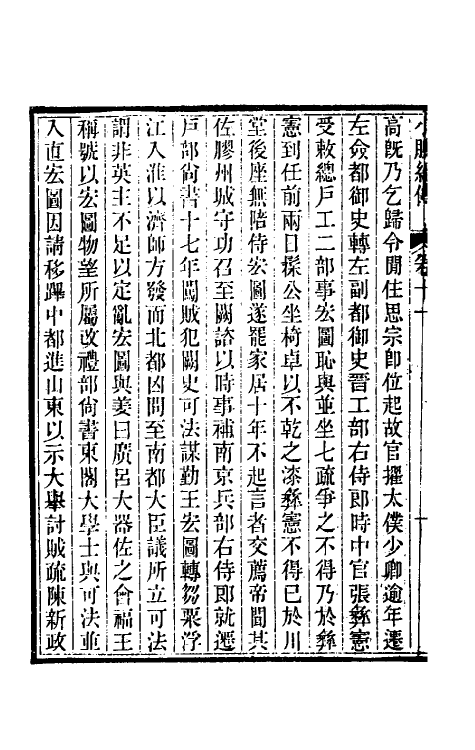 高既乃乞歸令閒住思宗卽位起故官擢太僕少卿逾年遷
左僉都御史轉左副都御史晉工部右侍郎時中官張彝憲
受敕總戶工二部事宏圖恥與並坐七疏爭之不得乃於彝
憲到任前兩日髹公坐椅卓以不乾之漆彝憲不得已於川
堂後座無陪侍宏圖遂罷家居十年不起言者交薦帝聞其
佐膠州城守功召至闕諮以時事補南京兵部右侍郎就遷
戶部尙書十七年闖賊犯闕史可法謀勤王宏圖轉芻粟浮
江入淮以濟師方發而北都凶問至南都大臣議所立可法
謂非英主不足以定亂宏圖與姜曰廣呂大器佐之會福王
稱號以宏圖物望所屬改禮部尙書東閣大學士與可法並
入直宏圖因請移蹕中都進山東以示大舉討賊疏陳新政